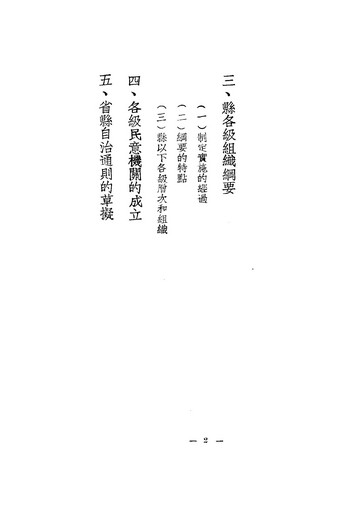 三、縣各級組織綱要
(一)制定實施的經過
(二)綱要的特點
(三)縣以下各級層次和組織
四、各級民意機關的成立
五、省縣自治通則的草擬
— 2 —